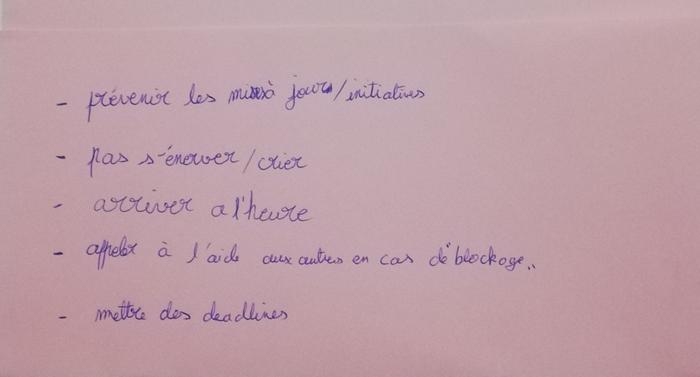 - prévenir les mises à jours/initiatives
- pas s'énerver/crier
- arriver a l'heure
- appeler à l'aide aux autres en cas de blockage..
- mettre des deadlines